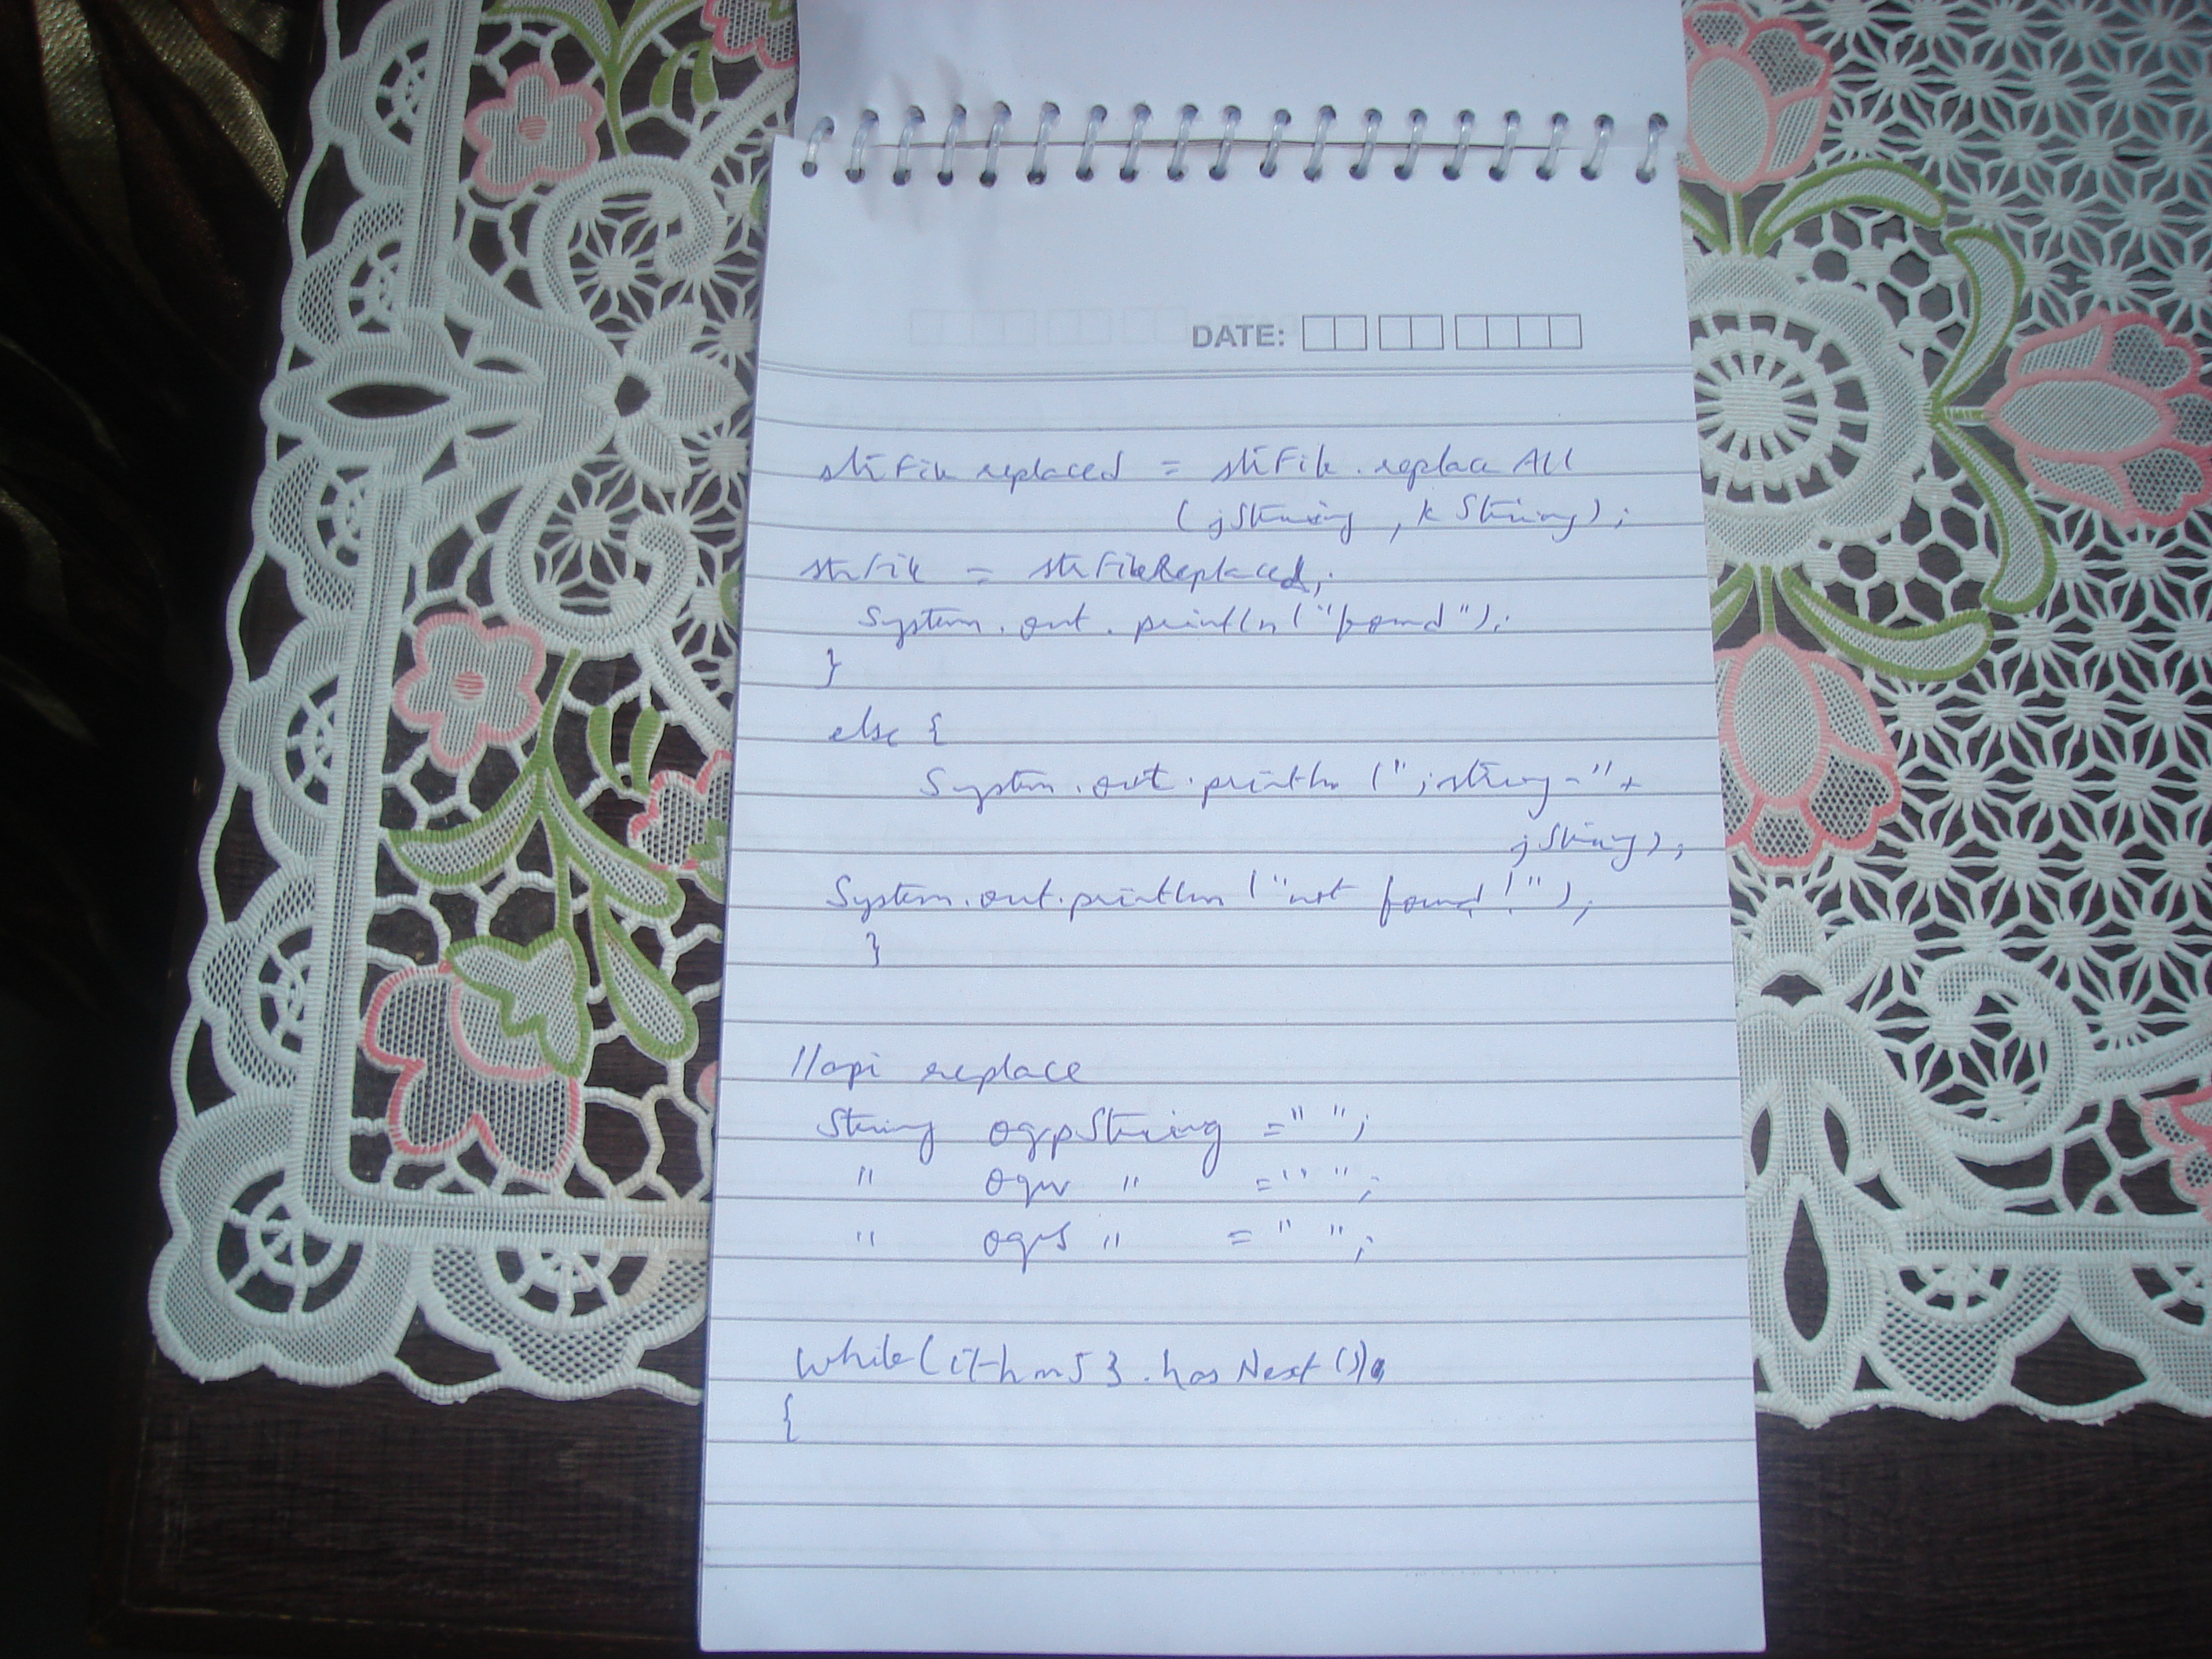 DATE:
strFile replaced = strFile.replaceAll
(jString, kString);
strFile = strFileReplaced;
System.out.println("found");
}
else {
System.out.println("jstring-"+
jString);
System.out.println("not found!");
}
//api replace
String ogpString =" ";
" ogw " =" ";
" ogs " = " ";
while(ithm53.hasNext())
{